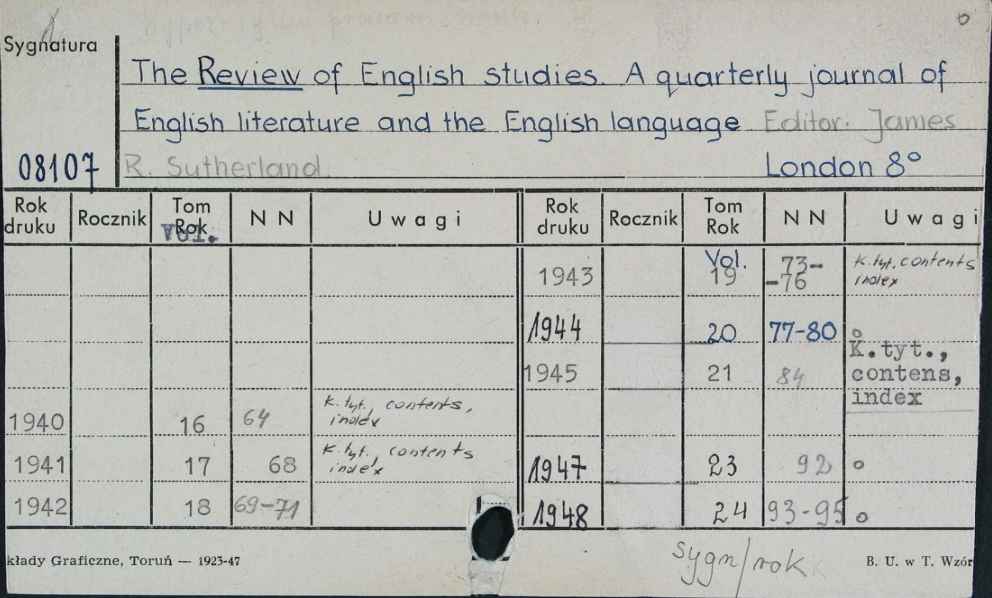 Sygnatura
The Review of English studies. A quarterly journal of
English literature and the English language Editor: James
08107 R. Sutherland. London 8°
Rok druku Rocznik Tom Rok Vol. N N Uwagi Rok druku Rocznik Tom Rok N N Uwagi
1943 Vol. 19 73-
-76 K. tyt. contents
index
1944 20 77-80 o
1945 21 84 K.tyt.,
contens,
index
1940 16 64 K. tyt., contents,
index
1941 17 68 K. tyt., contents
index 1947 23 92 o
1942 18 69-71 1948 24 93-95 o
kłady Graficzne, Toruń — 1923-47 sygn/rok B. U. w T. Wzór